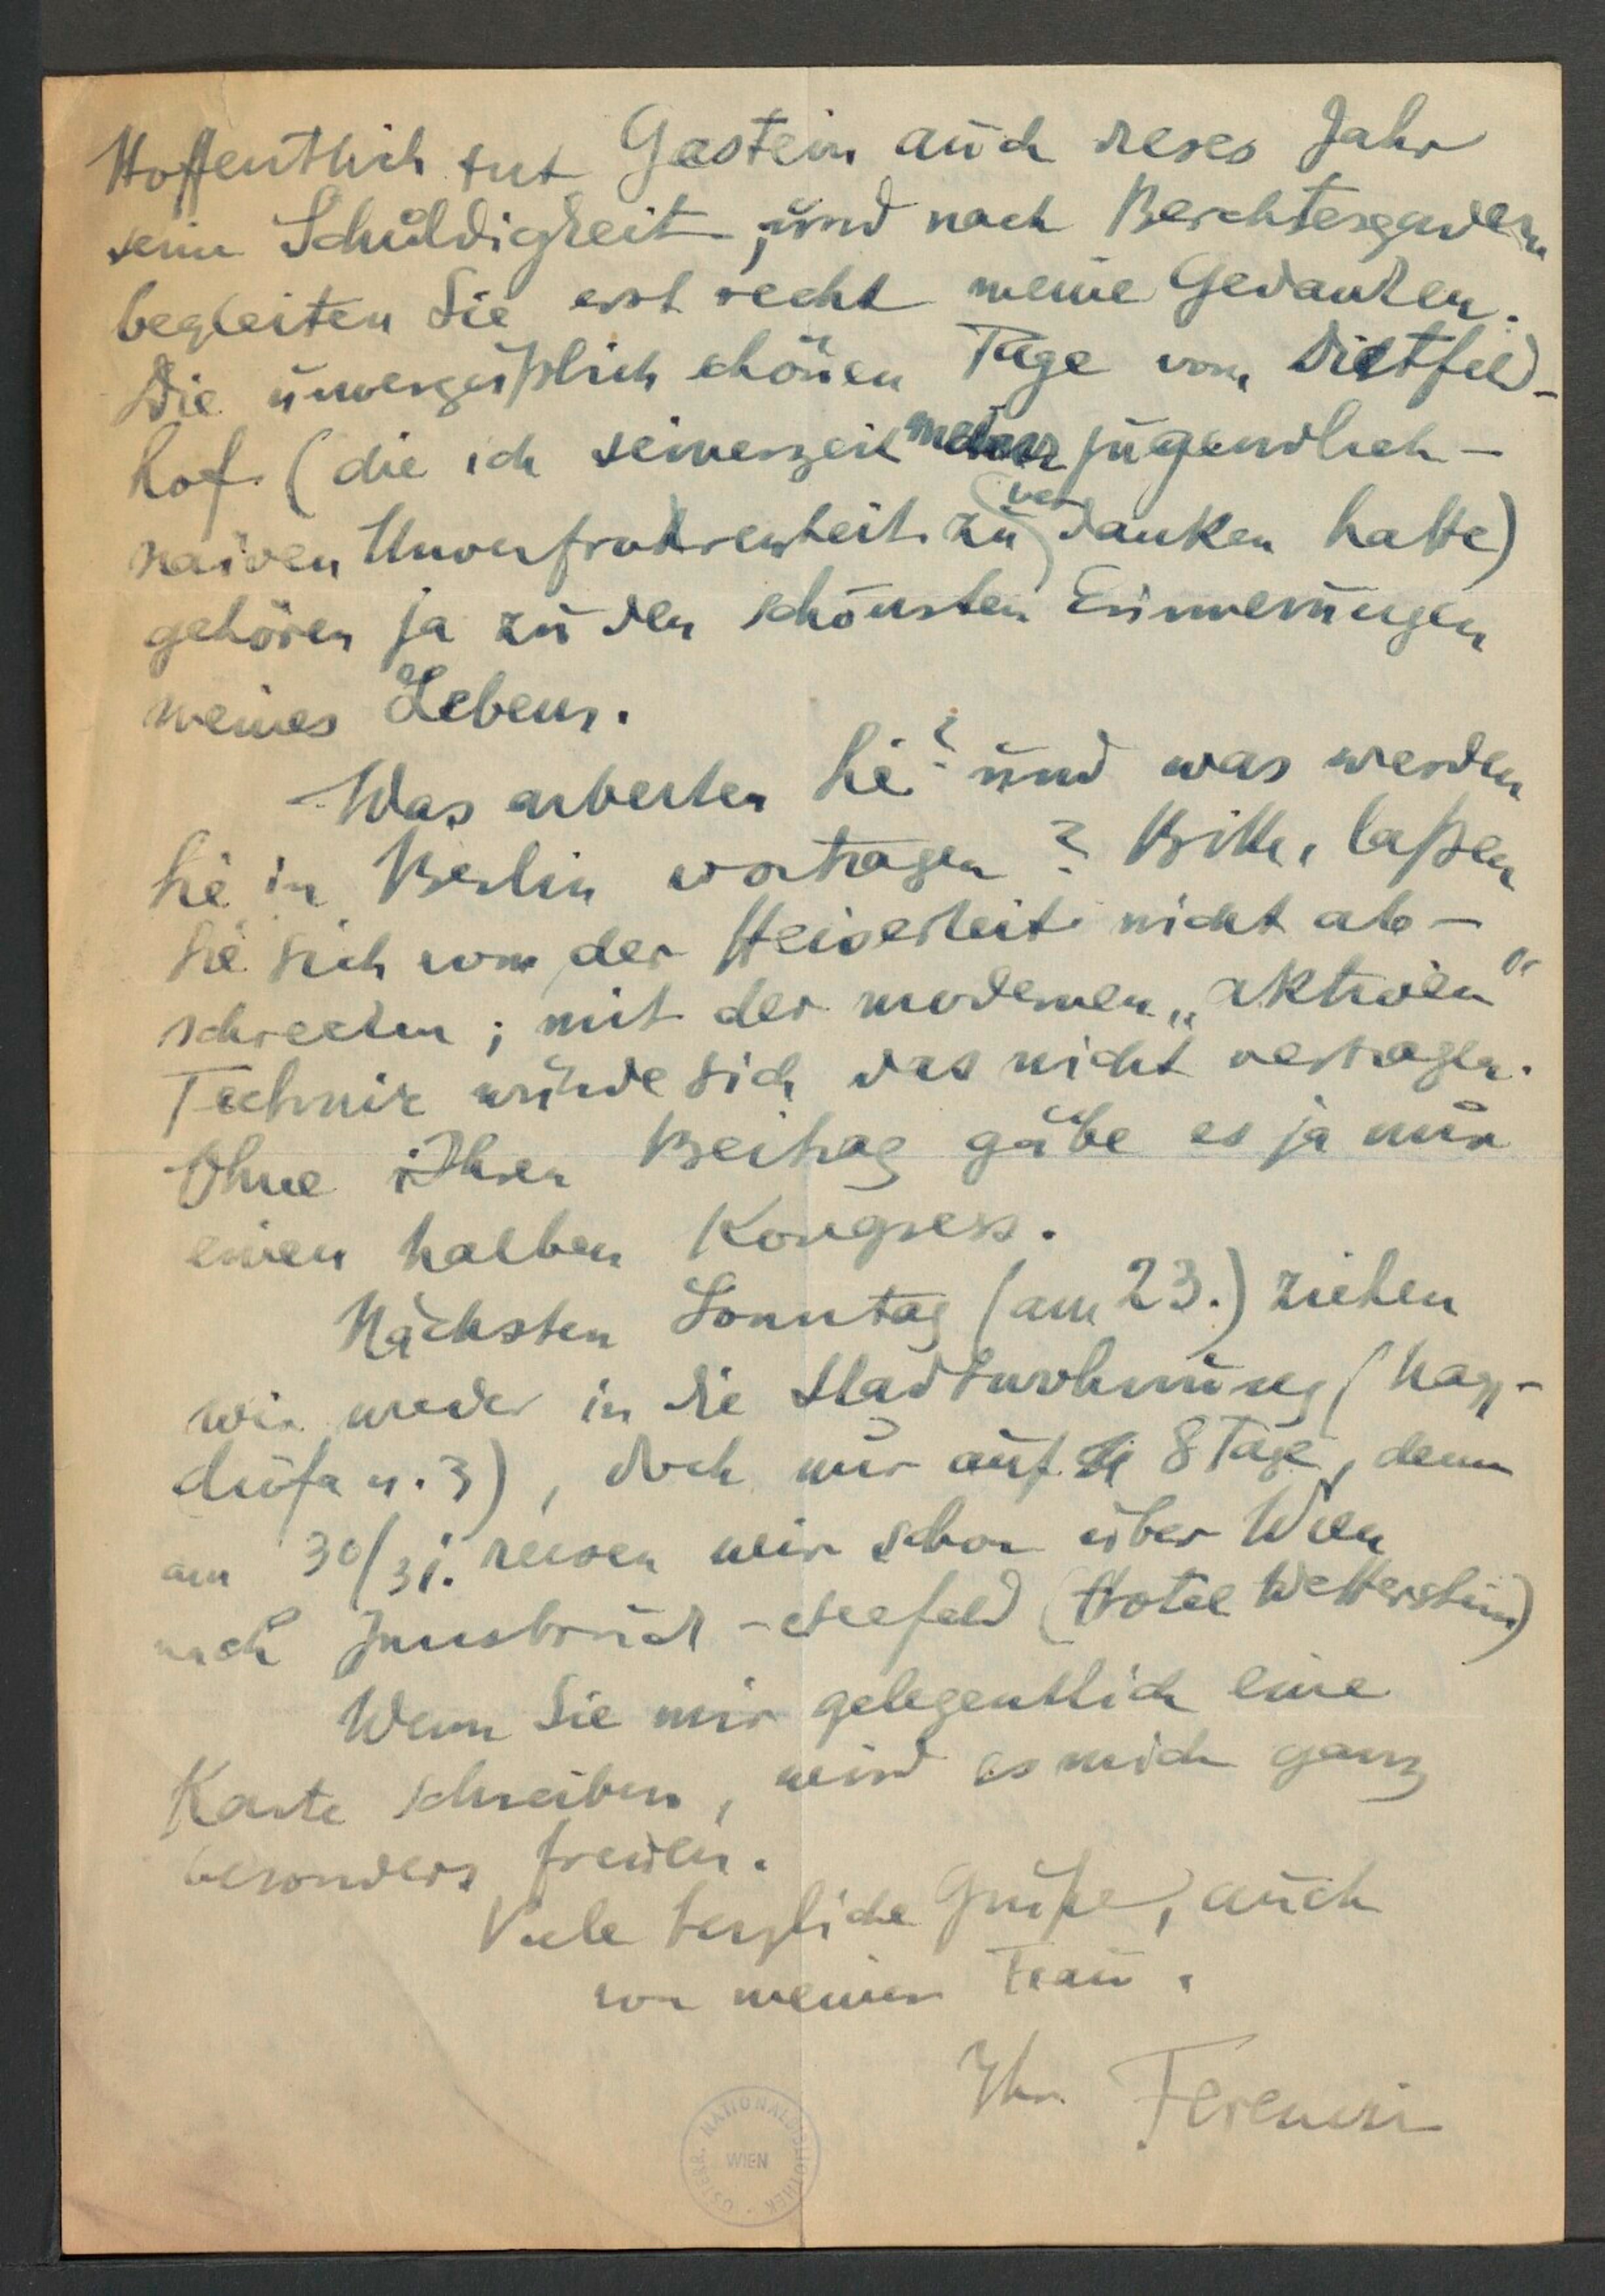 Hoffentlich tut Gastein auch dieses Jahr
seine Schuldigkeit, und nach Berchtesgaden
begleiten Sie erst recht meine Gedanken.
Die unvergeßlich schönen Tage vom Dietfeld-
hof (die ich seinerzeit meiner jugendlich-
naiven Unverfrorenheit zu verdanken hatte)
gehören ja zu den schönsten Erinnerungen
meines Lebens.
Was arbeiten Sie? und was werden
Sie in Berlin vortragen? Bitte, laßen
Sie sich von der Heiserkeit nicht ab-
schrecken; mit der modernen „aktiven“
Technik würde sich das nicht vertragen.
Ohne Ihren Beitrag gäbe es ja nur
einen halben Kongress.
Nächsten Sonntag (am 23.) ziehen
wir wieder in die Stadtwohnung (Nagy-
diófa u. 3), doch nur auf 8 Tage, denn
am 30/31. reisen wir schon über Wien
nach Innsbruck-Seefeld (Hotel Wetterstein)
Wenn Sie mir gelegentlich eine
Karte schreiben, wird es mich ganz
besonders freuen.
Viele herzliche Grüße, auch
von meiner Frau.
Ihr Ferenczi
ÖSTERR. NATIONALBIBLIOTHEK
WIEN